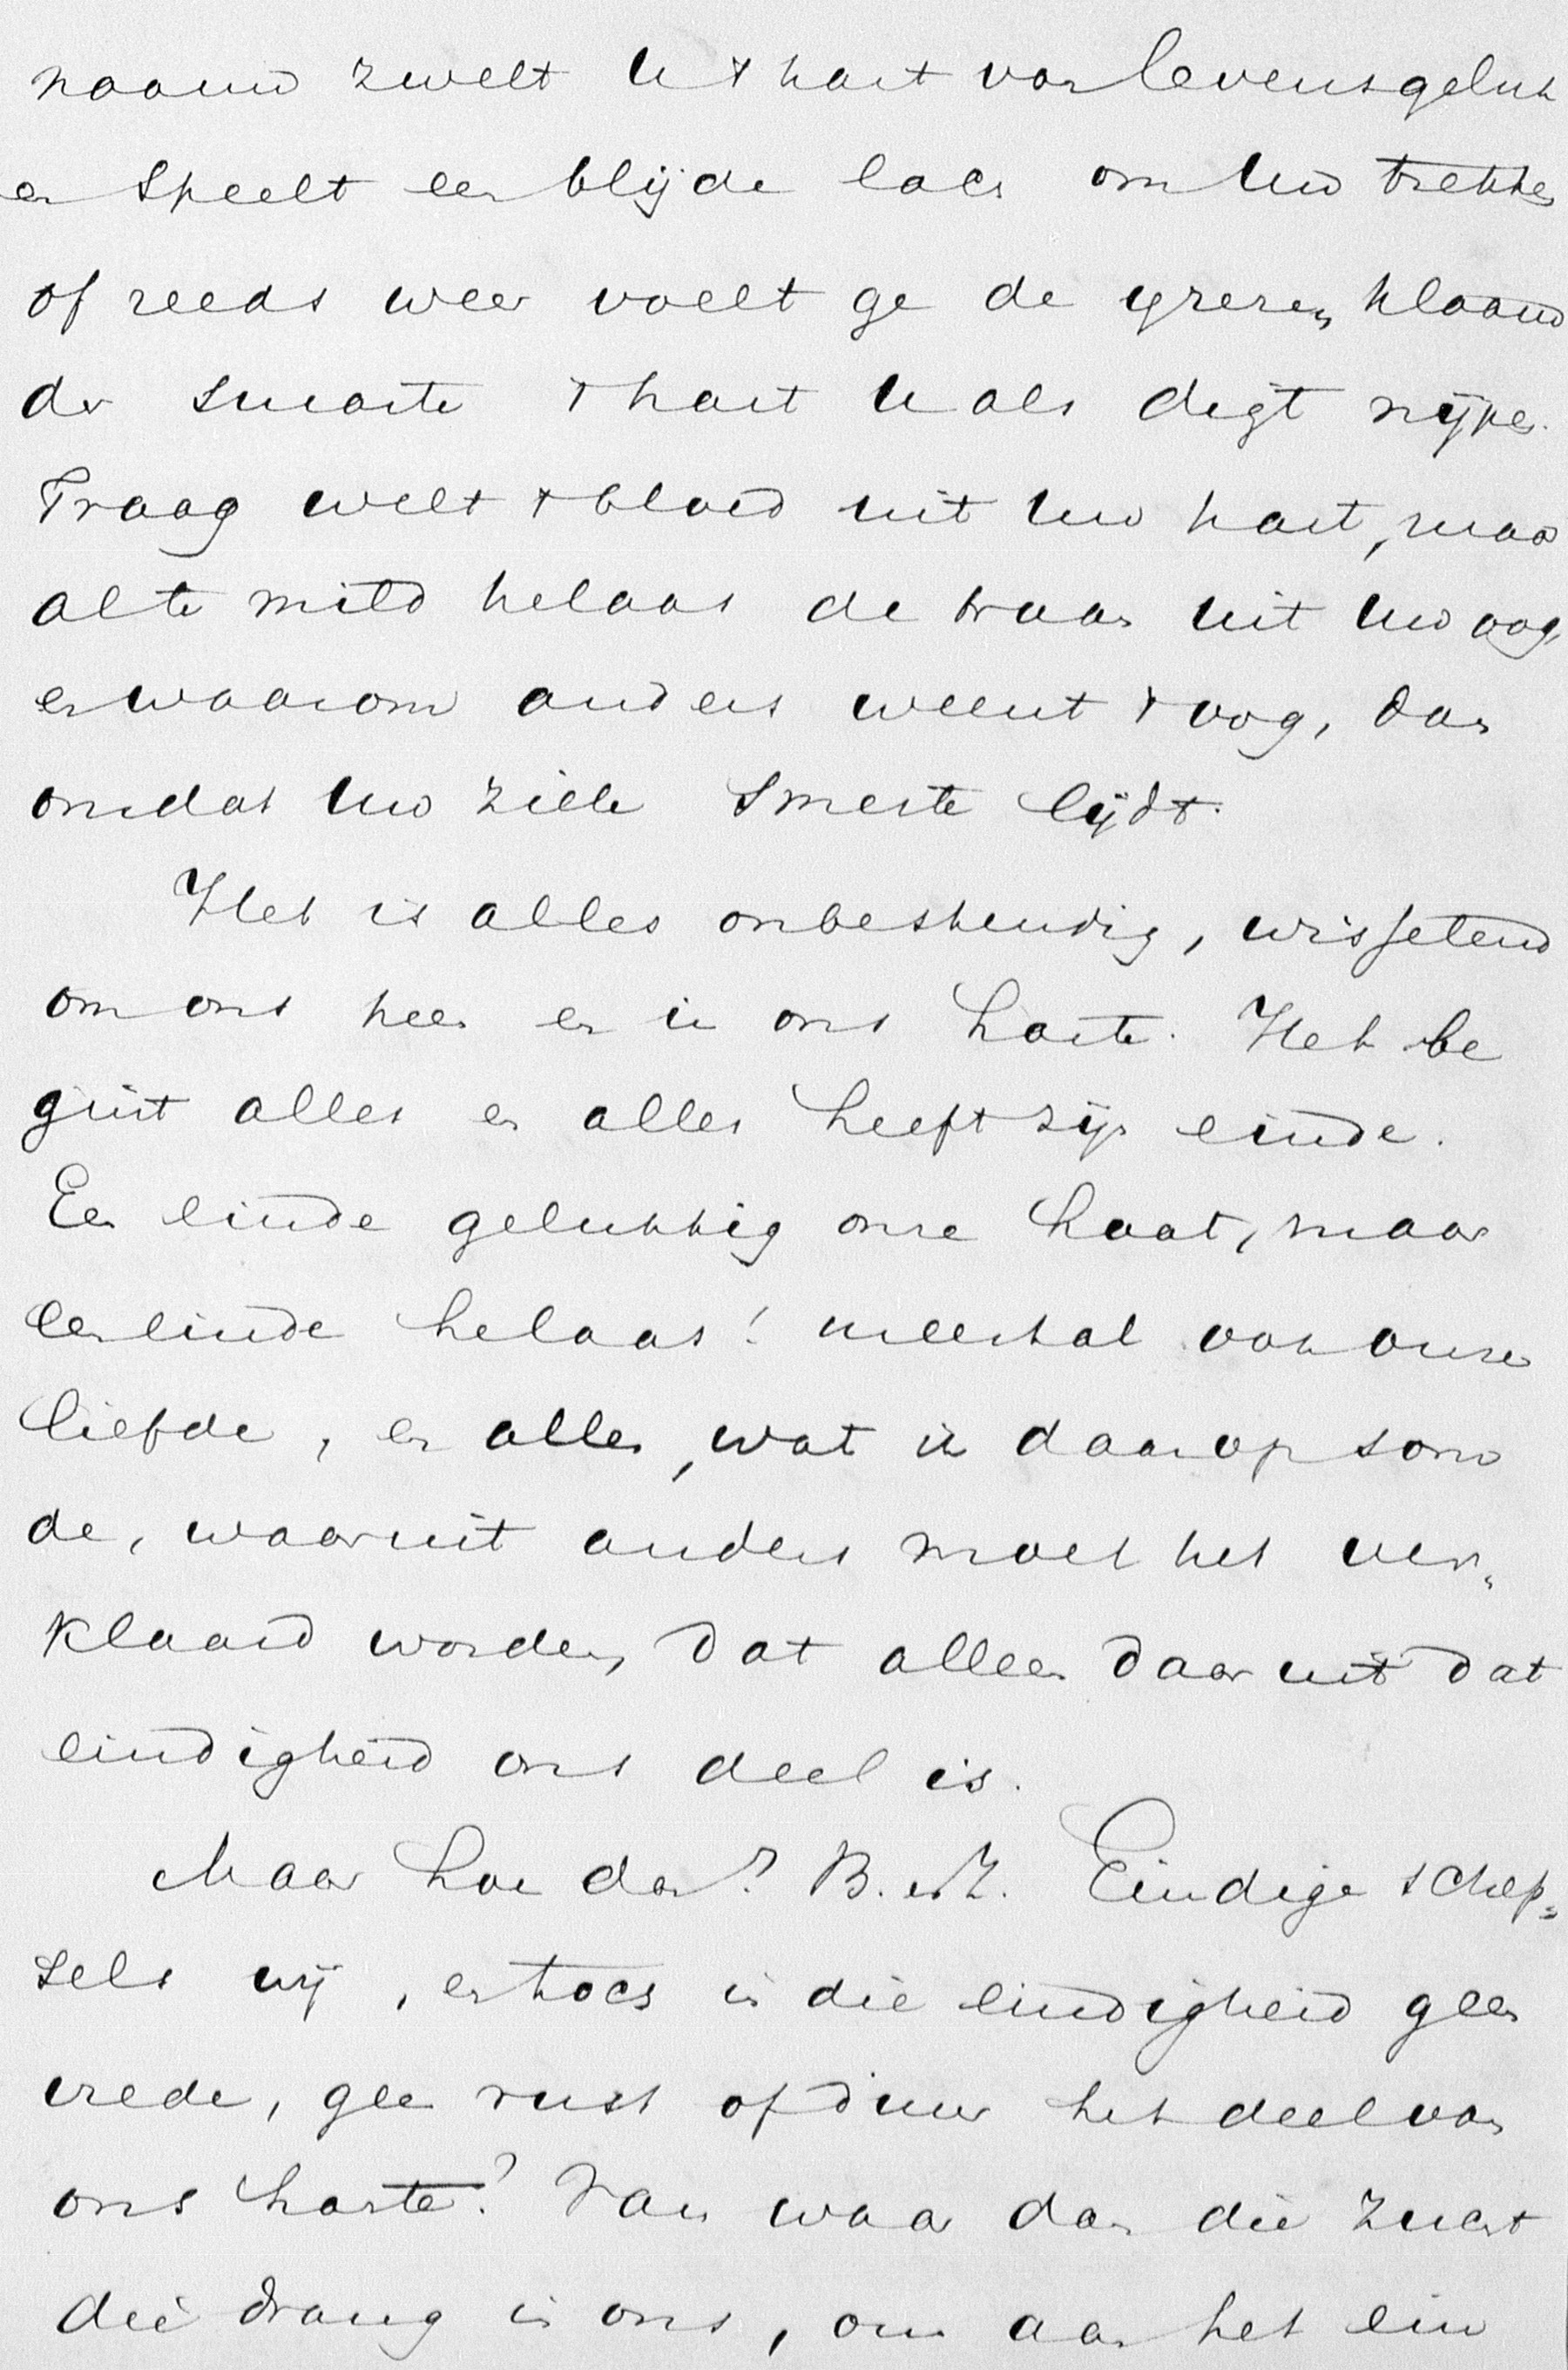 naauw zwelt U 't hart van levensgeluk
en speelt een blijde lach om Uw trekken
of reeds weer voelt ge de yzeren klaauw
der smarte 't hart U als digt nijpen.
Traag welt 't bloed uit Uw hart, maar
al te mild helaas de traan uit Uw oog,
en waarom anders weent 't oog, dan
omdat Uw ziele smerte lijdt.
Het is alles onbestendig, wisselend
om ons heen en in ons harte. Het be
gint alles en alles heeft zijn einde.
Een einde gelukkig onze haat, maar
een einde helaas! meestal ook onze
liefde, en alles, wat in daarop
de, waaruit anders moet het ver„
klaard worden, dat alleen daaruit dat
eindigheid ons deel is.
Maar hoe dan? B. en Z. Eindige schep=
sels wij, en toch in die eindigheid geen
vrede, geen rust of duur het deel van
ons harte? Van waar dan die zucht
die drang in ons, om aan het ein